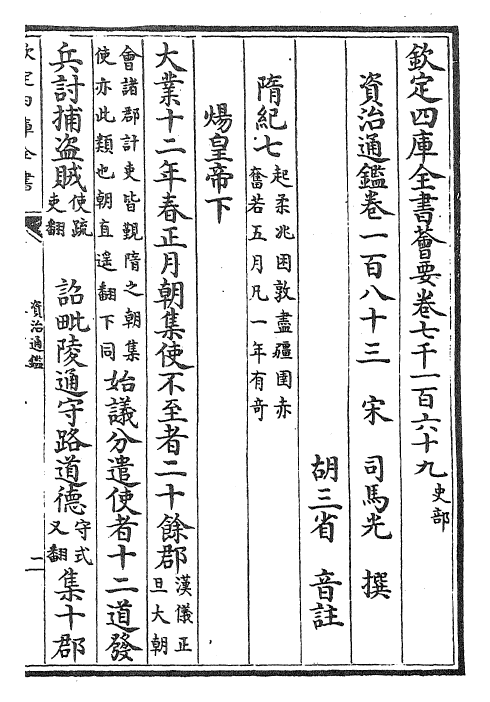 欽定四庫全書薈要卷七千一百六十九 史部
資治通鑑卷一百八十三 宋 司馬光 撰
胡三省 音註
隋紀七 起柔兆困敦盡疆圉赤
奮若五月凡一年有奇
煬皇帝下
大業十二年春正月朝集使不至者二十餘郡 漢儀正
旦大朝
會諸郡計吏皆覲隋之朝集
使亦此類也朝直遥翻下同 始議分遣使者十二道發
兵討捕盜賊 使疏
吏翻 詔毗陵通守路道德 守式
又翻 集十郡
欽定四庫全書
資治通鑑